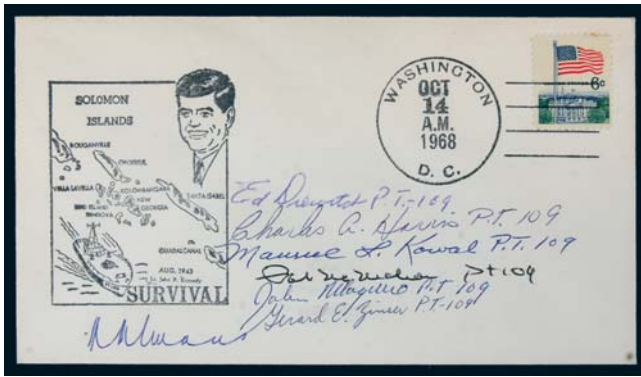 SOLOMON
ISLANDS
BOUGANVILLE
CHOISEUL
VELLA LAVELLA
KOLOMBANGARA
SANTA ISABEL
NEW
GEORGIA
BIRD ISLAND
RENDOVA
GUADALCANAL
AUG. 1943
Lt. John F. Kennedy
SURVIVAL
WASHINGTON
OCT
14
A.M.
1968
D. C.
6c
Ed Drewitch P.T.-109
Charles A. Harris P.T. 109
Maurice L. Kowal P.T. 109
Pat McMahon Pt 109
John Maguire P.T. 109
Gerard E. Zinser P.T-109